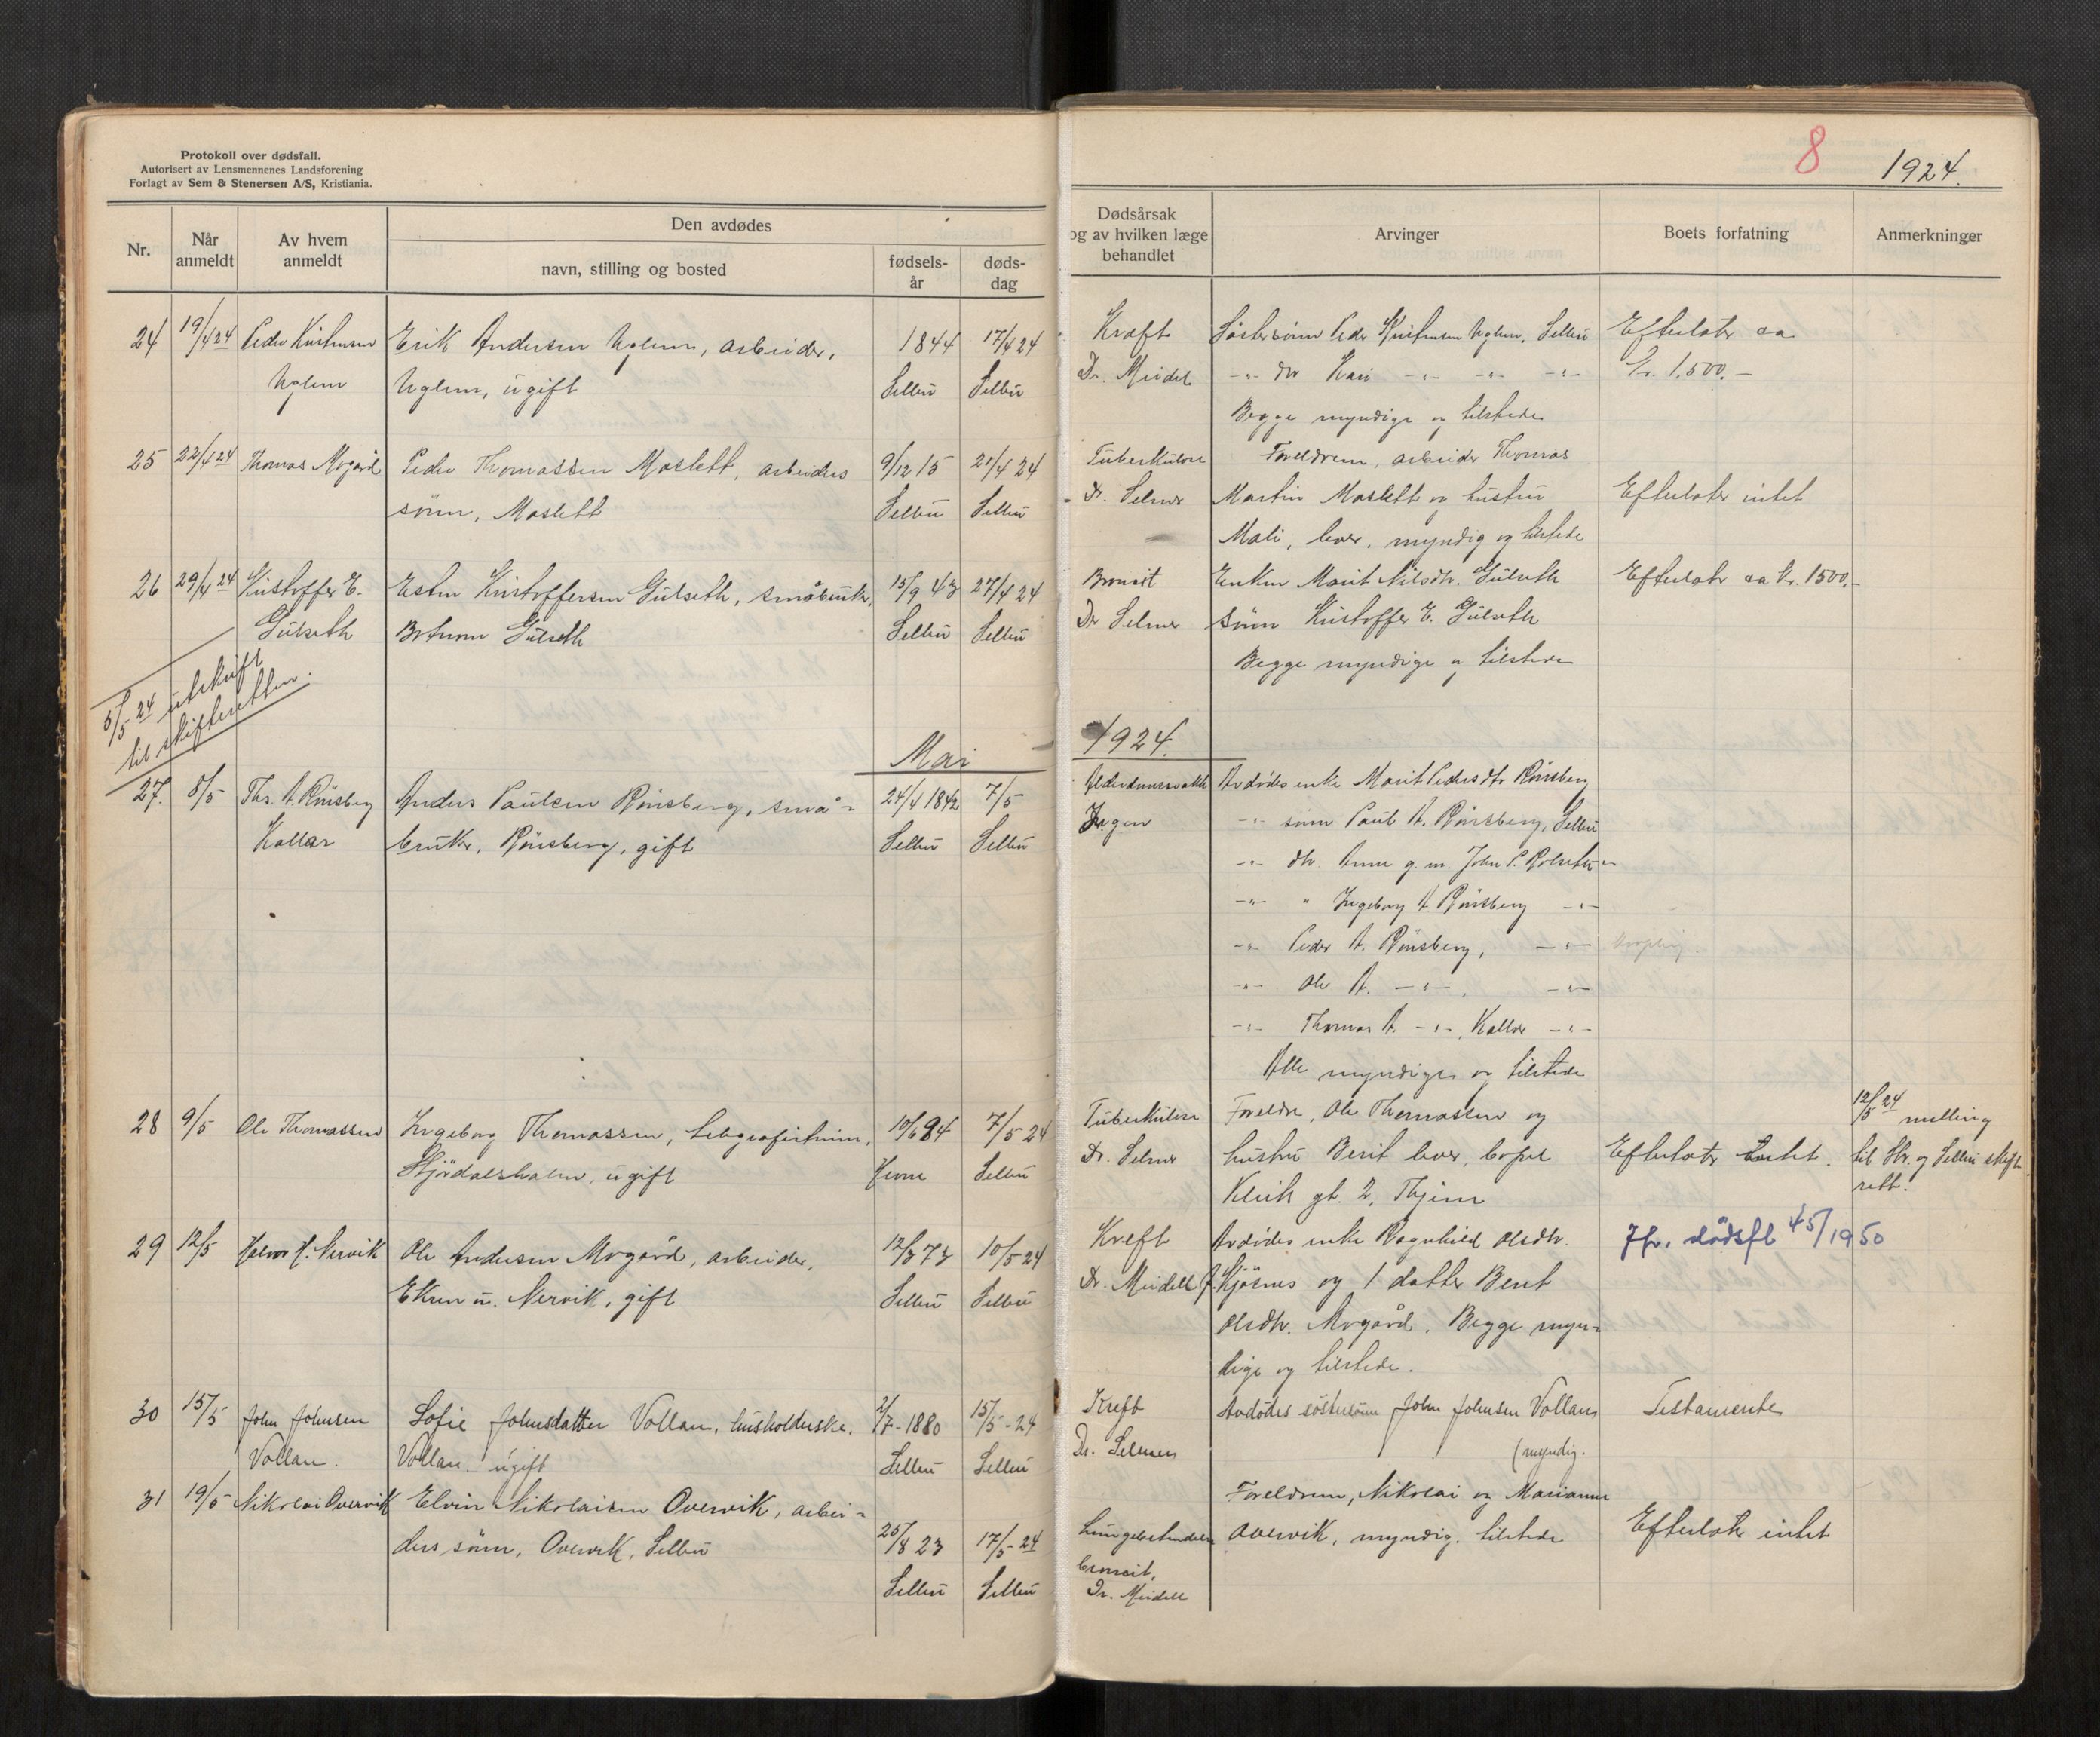 Protokoll over dødsfall.
Autorisert av Lensmennenes Landsforening
Forlagt av Sem & Stenersen A/S, Kristiania.
8 1924.
Nr.
Når anmeldt
Av hvem anmeldt
Den avdødes
navn, stilling og bosted
fødselsår
dødsdag
Dødsårsak og av hvilken læge behandlet
Arvinger
Boets forfatning
Anmerkninger
24 19/4 24 Peder Kristensen Erik Andersen Uglem, arbeider, 1844 17/4 24 Kræft Søstersønn Peder Kristensen Uglem, Selbu Efterlater ca
Uglem Uglem, ugift Selbu Selbu Dr. Meidel -"- dtr Kari -"- -"- -"- kr. 1.500.-
Begge myndige og tilstede
25 22/4 24 Thomas Mogård Peder Thomassen Moslett, arbeiders 9/12 15 21/4 24 Tuberkulose Foreldrene, arbeider Thomas
sønn, Moslett Selbu Selbu Dr. Selmer Martin Moslett og hustru Efterlater intet
Mali, lever, myndig og tilstede
26 29/4 24 Kristoffer E. Esten Kristoffersen Gulseth, småbruker, 15/9 43 27/4 24 Bronkit Enken Marit Nilsdtr. Gulseth Efterlater ca kr. 1500.-
Gulseth Gulseth Selbu Selbu Dr Selmer sønn Kristoffer E. Gulseth
Begge myndige og tilstede
5/5 24 utskrift
til skifteretten.
Mai 1924.
27. 8/5 Ths. A. Rønsberg Anders Paulsen Rønsberg, små- 24/4 1842 7/5 Alderdomssvakhet Avdødes enke Marit Pedersdtr Rønsberg
Kallar bruker, Rønsberg, gift Selbu Selbu Ingen -"- sønn Paul A. Rønsberg, Selbu
-"- dtr. Anne g. m. John P. Rolseth -"-
-"- " Ingeborg A. Rønsberg -"-
-"- Peder A. Rønsberg, -"-
-"- Ole A. -"-, -"-
-"- Thomas A. -"-, Kallar -"-
Alle myndige og tilstede
28 9/5 Ole Thomassen Ingeborg Thomassen, telegrafistinne, 10/6 94 7/5 24 Tuberkulose Foreldre, Ole Thomassen og 12/5 24 melling
Stjørdalshalsen, ugift Selbu Dr. Selmer hustru Berit lever, bopel Efterlater intet. til Str. og Selbu skift
gt. 2, Thjem rett.
29 12/5 Halvor H. Nervik Ole Andersen Mogård, arbeider, 12/3 73 10/5 24 Kreft Avdødes enke Ragnhild Olsdtr. Jfr. dødsfl 45/1950
Ekren u. Nervik, gift Selbu Selbu Dr. Meidell f. Kjøsnes og 1 datter Berit
Olsdtr. Mogård. Begge myn-
dige og tilstede.
30 15/5 John Johnsen Sofie Johnsdatter Vollan, husholderske. 2/7-1880 15/5-24 Kreft Avdødes søstersønn John Johnsen Vollan Testamente
Vollan. Vollan. ugift Selbu Selbu Dr. Selmer (myndig.
31 19/5 Nikolai Overvik Elvin Nikolaisen Overvik, arbei- Foreldrene, Nikolai og Marianne
ders sønn, Overvik, Selbu 25/8 23 17/5-24 Lungebetendelse Overvik, myndig. tilstede Efterlater intet
Selbu Selbu bronkit,
Dr. Meidell